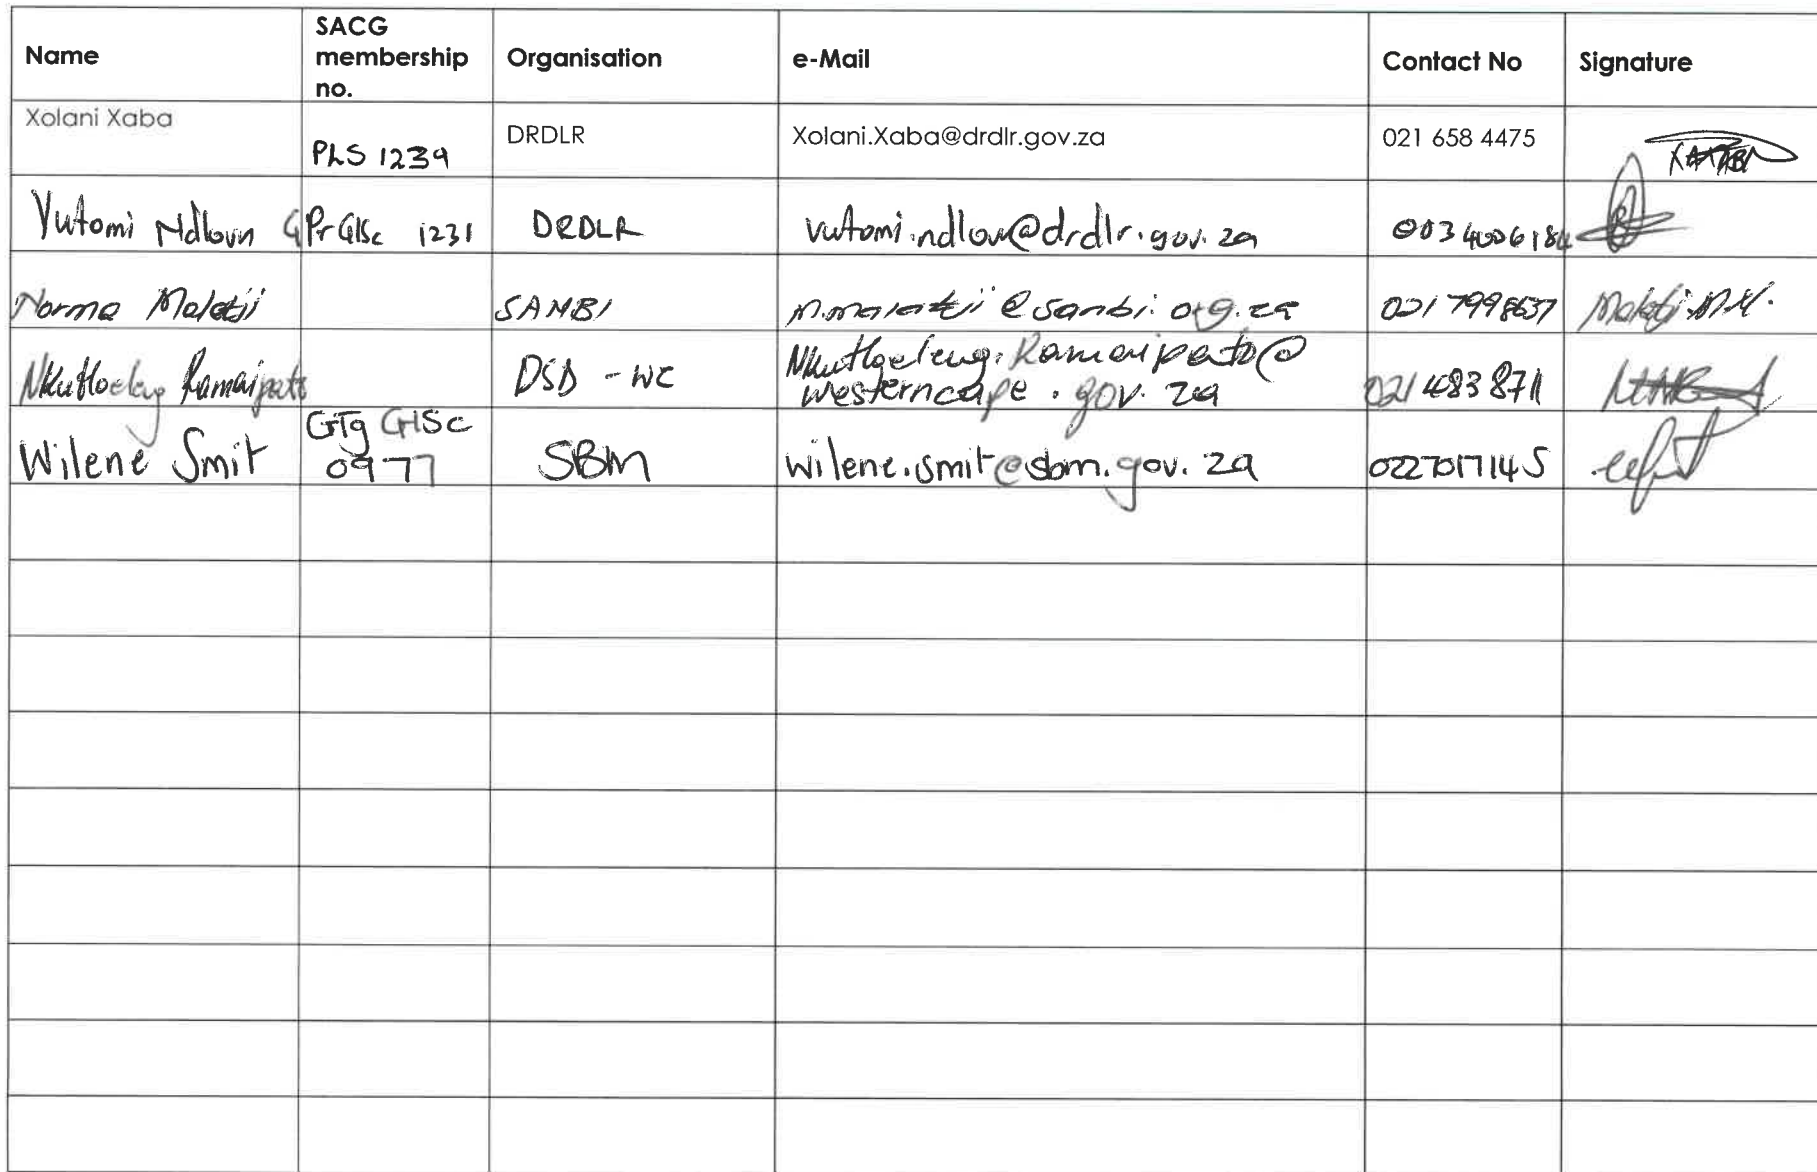 Name SACG membership no. Organisation e-Mail Contact No Signature
Xolani Xaba PLS 1239 DRDLR Xolani.Xaba@drdlr.gov.za 021 658 4475
Vutomi Ndlovu GPrGISc 1231 DRDLR vutomi.ndlovu@drdlr.gov.za
Norma Malatji SANBI m.malatji@sanbi.org.za 021 7998637 Malatji M.N.
DSD - WC
westerncape.gov.za 021 483 8711
Wilene Smit GTg GISc 0977 SBM wilene.smit@sbm.gov.za 0227017145